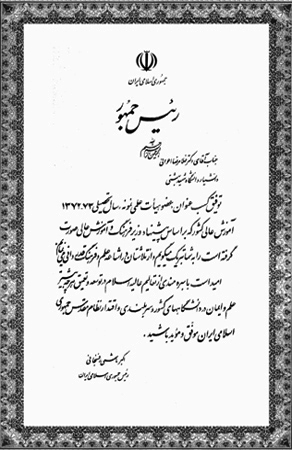 جمهوری اسلامی ایران
رئیس جمهور
جناب آقای دکتر غلامرضا اعوانی
دانشیار دانشگاه شهید بهشتی
توفیق کسب عنوان، عضو هیأت علمی نمونه، سال تحصیلی ۱۳۷۲-۷۳
آموزش عالی کشور که بر اساس پیشنهاد وزیر فرهنگ و آموزش عالی صورت
گرفته است را به شما تبریک میگویم و از تلاشتان در راه اشاعه علم و فرهنگ
امید است با بهره مندی از تعالیم عالیه اسلام در توسعه و تعمیق هر چه بیشتر
علم و ایمان در دانشگاههای کشور و سربلندی و اقتدار نظام مقدس جمهوری
اسلامی ایران موفق و مؤید باشید.
اکبر هاشمی رفسنجانی
رئیس جمهوری اسلامی ایران